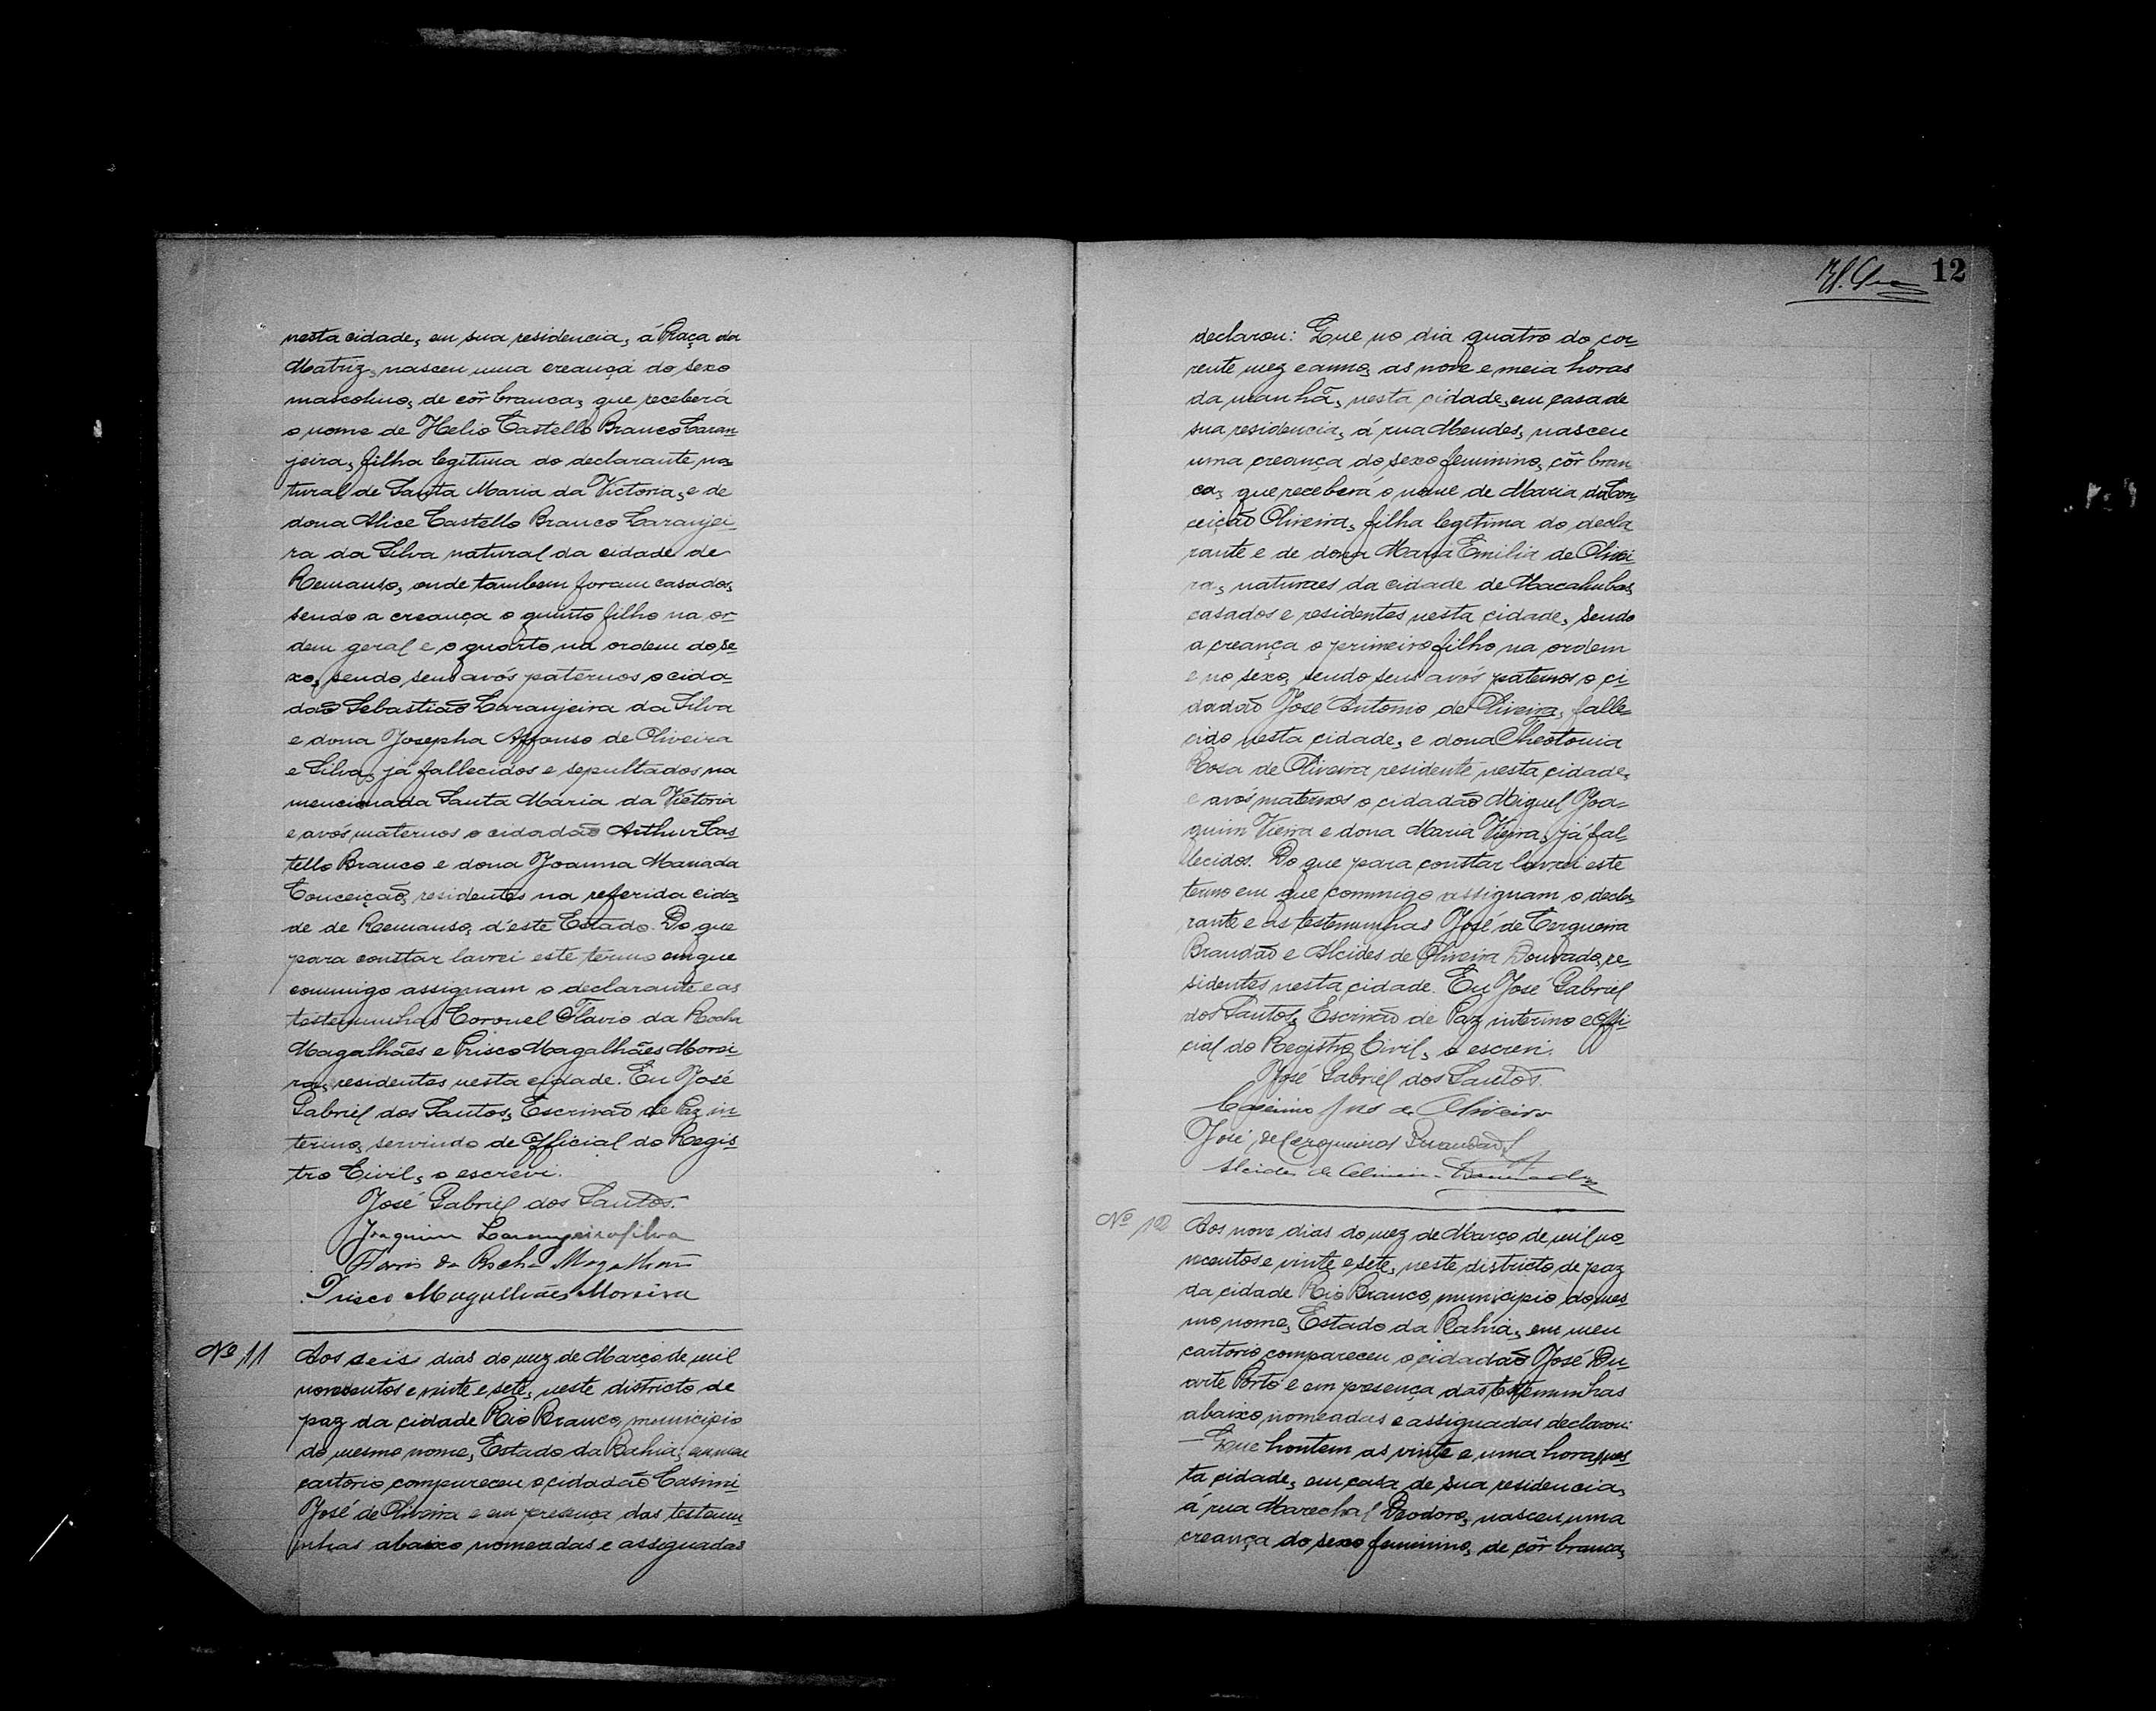 nesta cidade, em sua residencia, á Praça da
Matriz, nasceu uma creança do sexo
mascolino, de côr branca, que receberá
o nome de Helio Castello Branco Laran-
jeira, filha legitima do declarante, na-
tural de Santa Maria da Victoria, e de
dona Alice Castello Branco Laranjei-
ra da Silva natural da cidade de
Remanso, onde tambem foram casados,
sendo a creança o quinto filho na or-
dem geral e o quarto na ordem do se-
xo, sendo seus avós paternos o cida-
dão Sebastião Laranjeira da Silva
e dona Josepha Affonso de Oliveira
e Silva, já fallecidos e sepultados na
mencionada Santa Maria da Victoria
e avós maternos o cidadão Arthur Cas-
tello Branco e dona Joanna Maria da
Conceição, residentes na referida cida-
de de Remanso, d'este Estado. Do que
para constar lavrei este termo em que
commigo assignam o declarante e as
testemunhas Coronel Flavio da Rocha
Magalhães e Prisco Magalhães Morei-
ra, residentes nesta cidade. Eu José
Gabriel dos Santos, Escrivão de Paz in-
terino, servindo de Official do Regis-
tro Civil, o escrevi.
José Gabriel dos Santos.
Joaquim Laranjeira Silva
Flavio da Rocha Magalhães
Prisco Magalhães Moreira
Nº 11
Aos seis dias do mez de Março de mil
novecentos e vinte e sete, neste districto de
paz da cidade Rio Branco, municipio
do mesmo nome, Estado da Bahia, em meu
cartorio compareceu o cidadão Casimi-
José de Oliveira e em presença das testemu-
nhas abaixo nomeadas e assignadas
12
declarou: Que no dia quatro do cor-
rente mez e anno, as nove e meia horas
da manhã, nesta cidade, em casa de
sua residencia, á rua Mendes, nasceu
uma creança do sexo feminino, côr bran-
ca, que receberá o nome de Maria da Con-
ceição Oliveira, filha legitima do decla-
rante e de dona Maria Emilia de Olivei-
ra, naturaes da cidade de Macahubas,
casados e residentes nesta cidade, sendo
a creança o primeiro filho na ordem
e no sexo, sendo seus avós paternos o ci-
dadão José Antonio de Oliveira, falle-
cido nesta cidade, e dona Theotonia
Rosa de Oliveira residente nesta cidade,
e avós maternos o cidadão Miguel Joa-
quim Vieira e dona Maria Vieira, já fal-
lecidos. Do que para constar lavrei este
termo em que commigo assignam o decla-
rante e as testemunhas José de Cerqueira
Brandão e Alcides de Oliveira Dourado, re-
sidentes nesta cidade. Eu José Gabriel
dos Santos, Escrivão de Paz interino e Offi-
cial do Registro Civil, o escrevi.
José Gabriel dos Santos.
Casimiro José de Oliveira
José de Cerqueira Brandão
Alcides de Oliveira Dourado
Nº 12
Aos nove dias do mez de Março de mil no-
vecentos e vinte e sete, neste districto de paz
da cidade Rio Branco, municipio do mes-
mo nome, Estado da Bahia, em meu
cartorio compareceu o cidadão José Du-
arte Porto e em presença das testemunhas
abaixo nomeadas e assignadas declarou:
Que hontem as vinte e uma horas, nes-
ta cidade, em casa de sua residencia,
á rua Marechal Deodoro, nasceu uma
creança do sexo feminino, de côr branca,